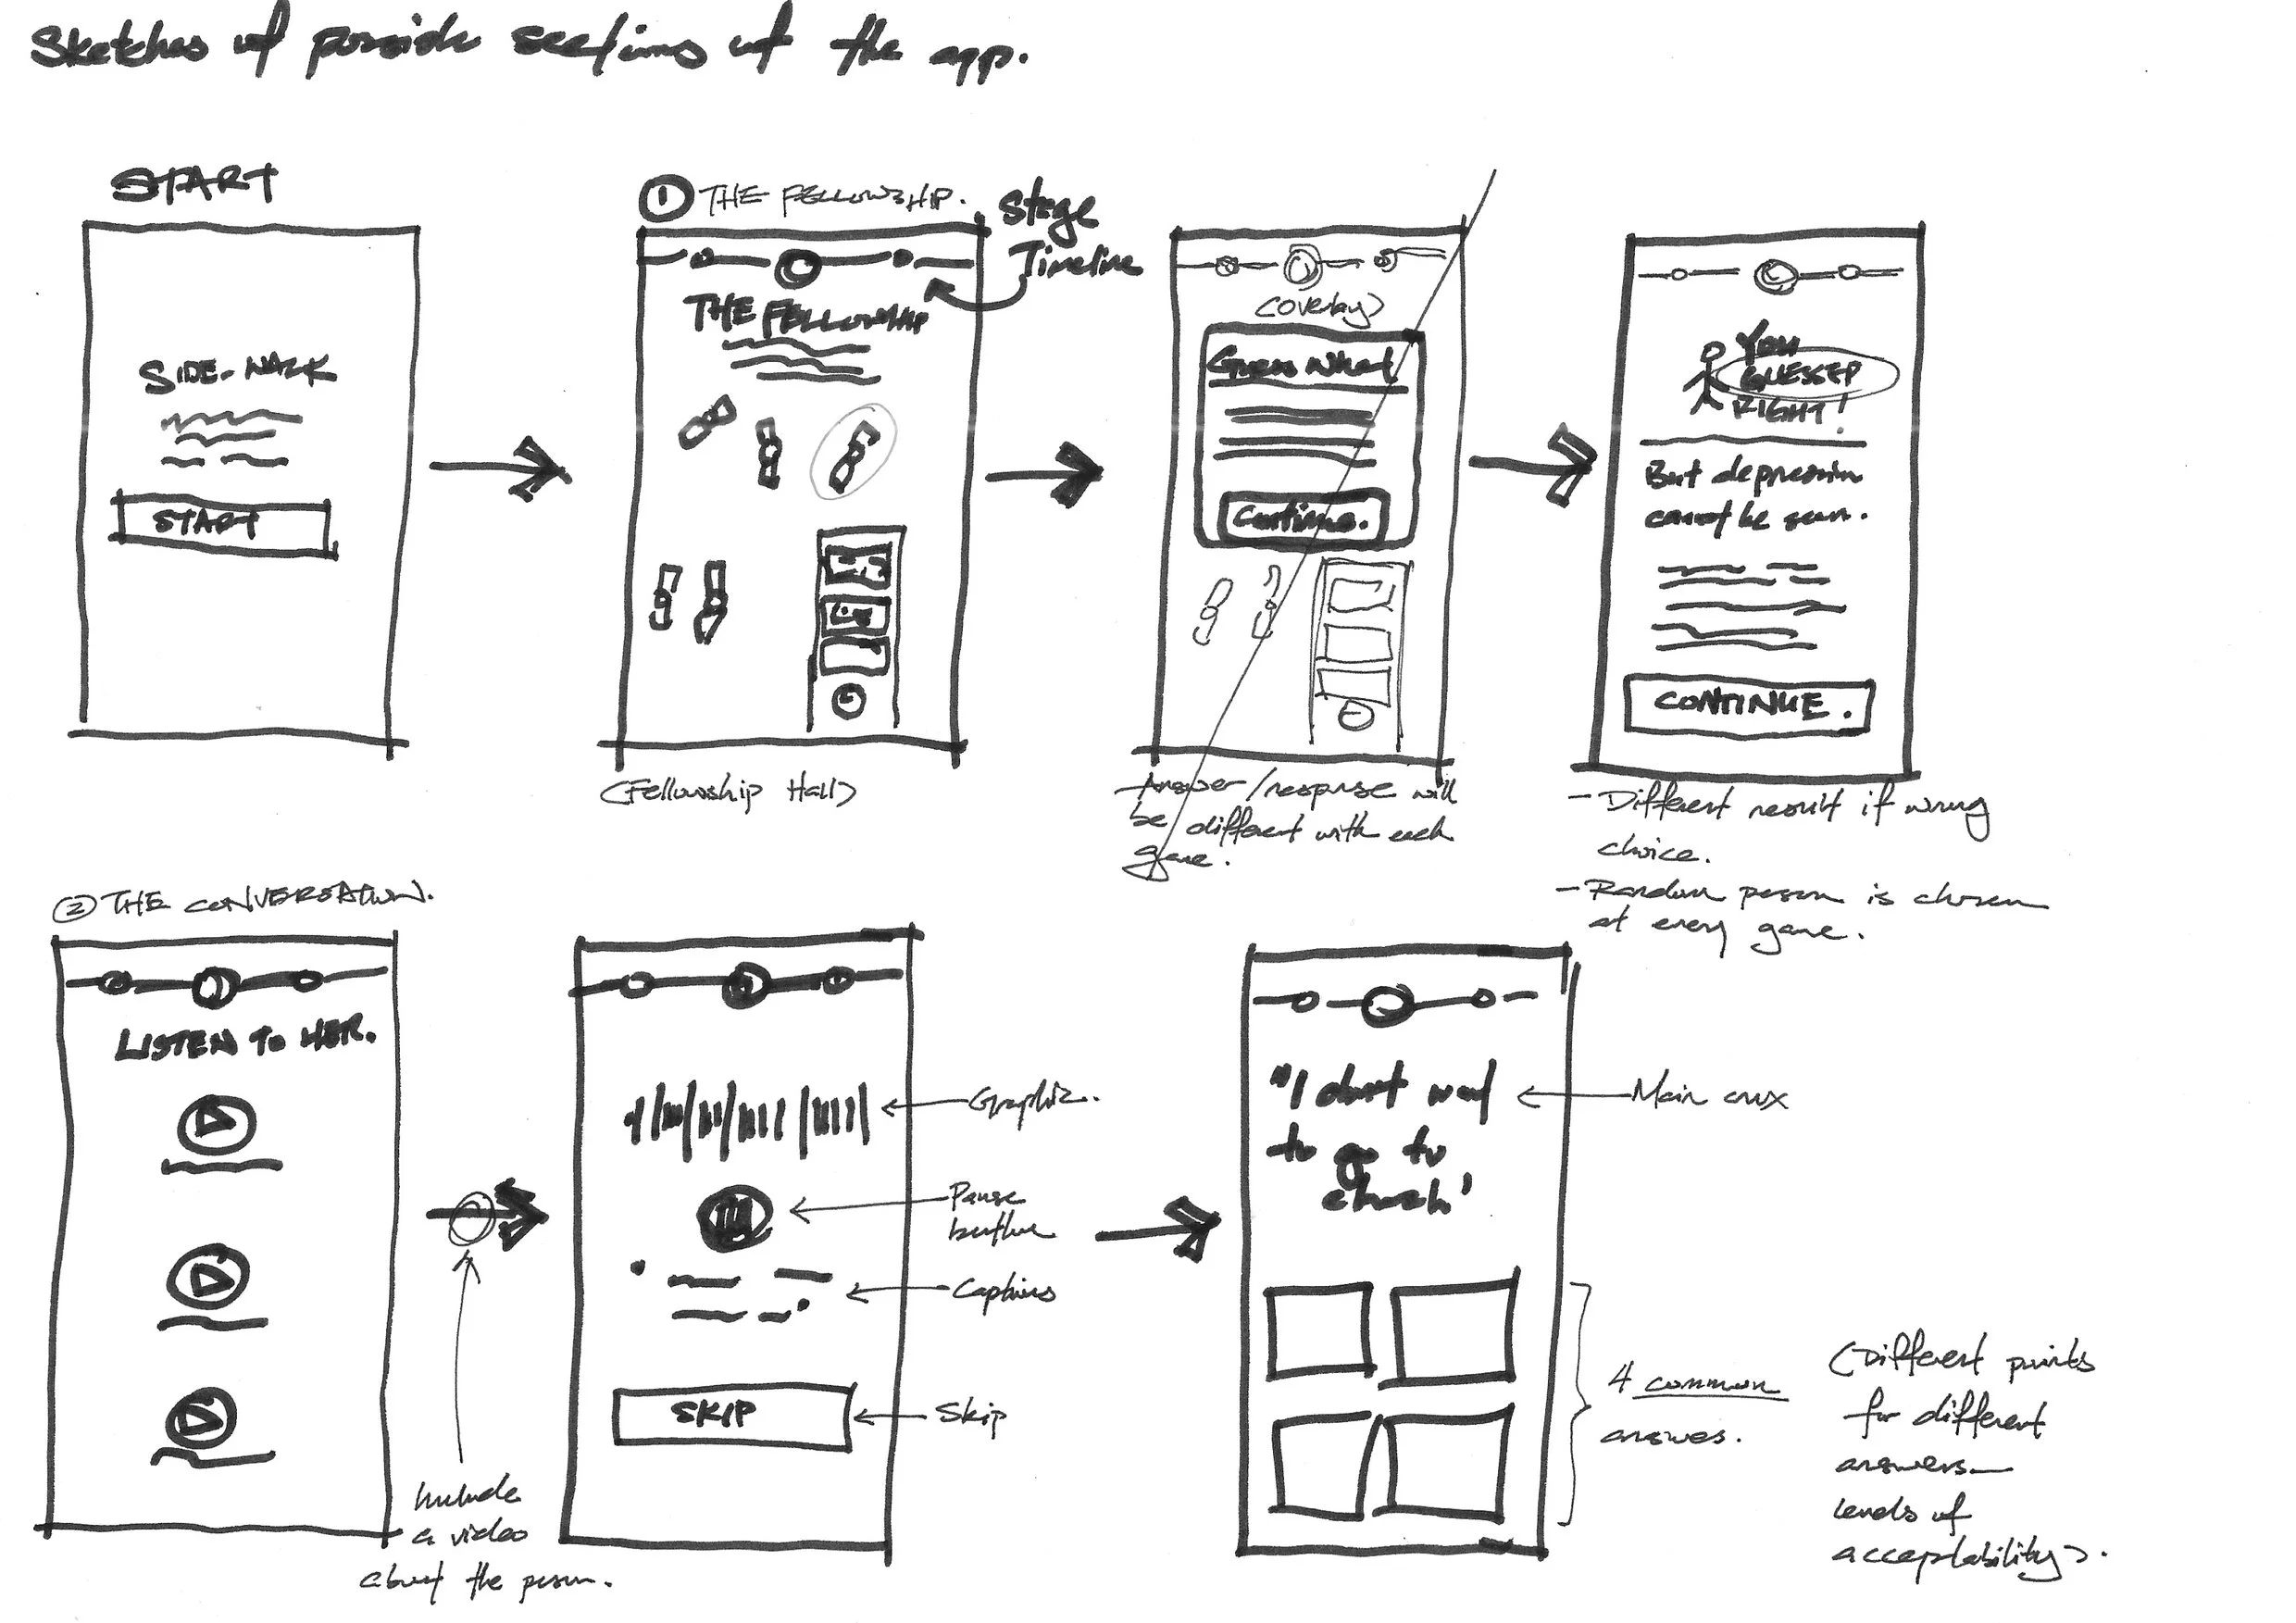 Sketches of possible sections of the app.
START
SIDE-WALK
START
1 THE FELLOWSHIP.
Stage
Timeline
THE FELLOWSHIP
(Fellowship Hall)
(overlay)
Guess what
Continue.
-Answer/response will
be different with each
game.
YOU
GUESSED
RIGHT!
But depression
cannot be seen.
CONTINUE.
- Different result if wrong
choice.
- Random person is chosen
at every game.
2 THE CONVERSATION.
LISTEN TO HER.
Include
a video
about the person.
Graphic.
Pause
button
Captions
SKIP
Skip
"I don't want
to go to
church"
Main crux
4 common
answers.
(Different points
for different
answers—
levels of
acceptability).